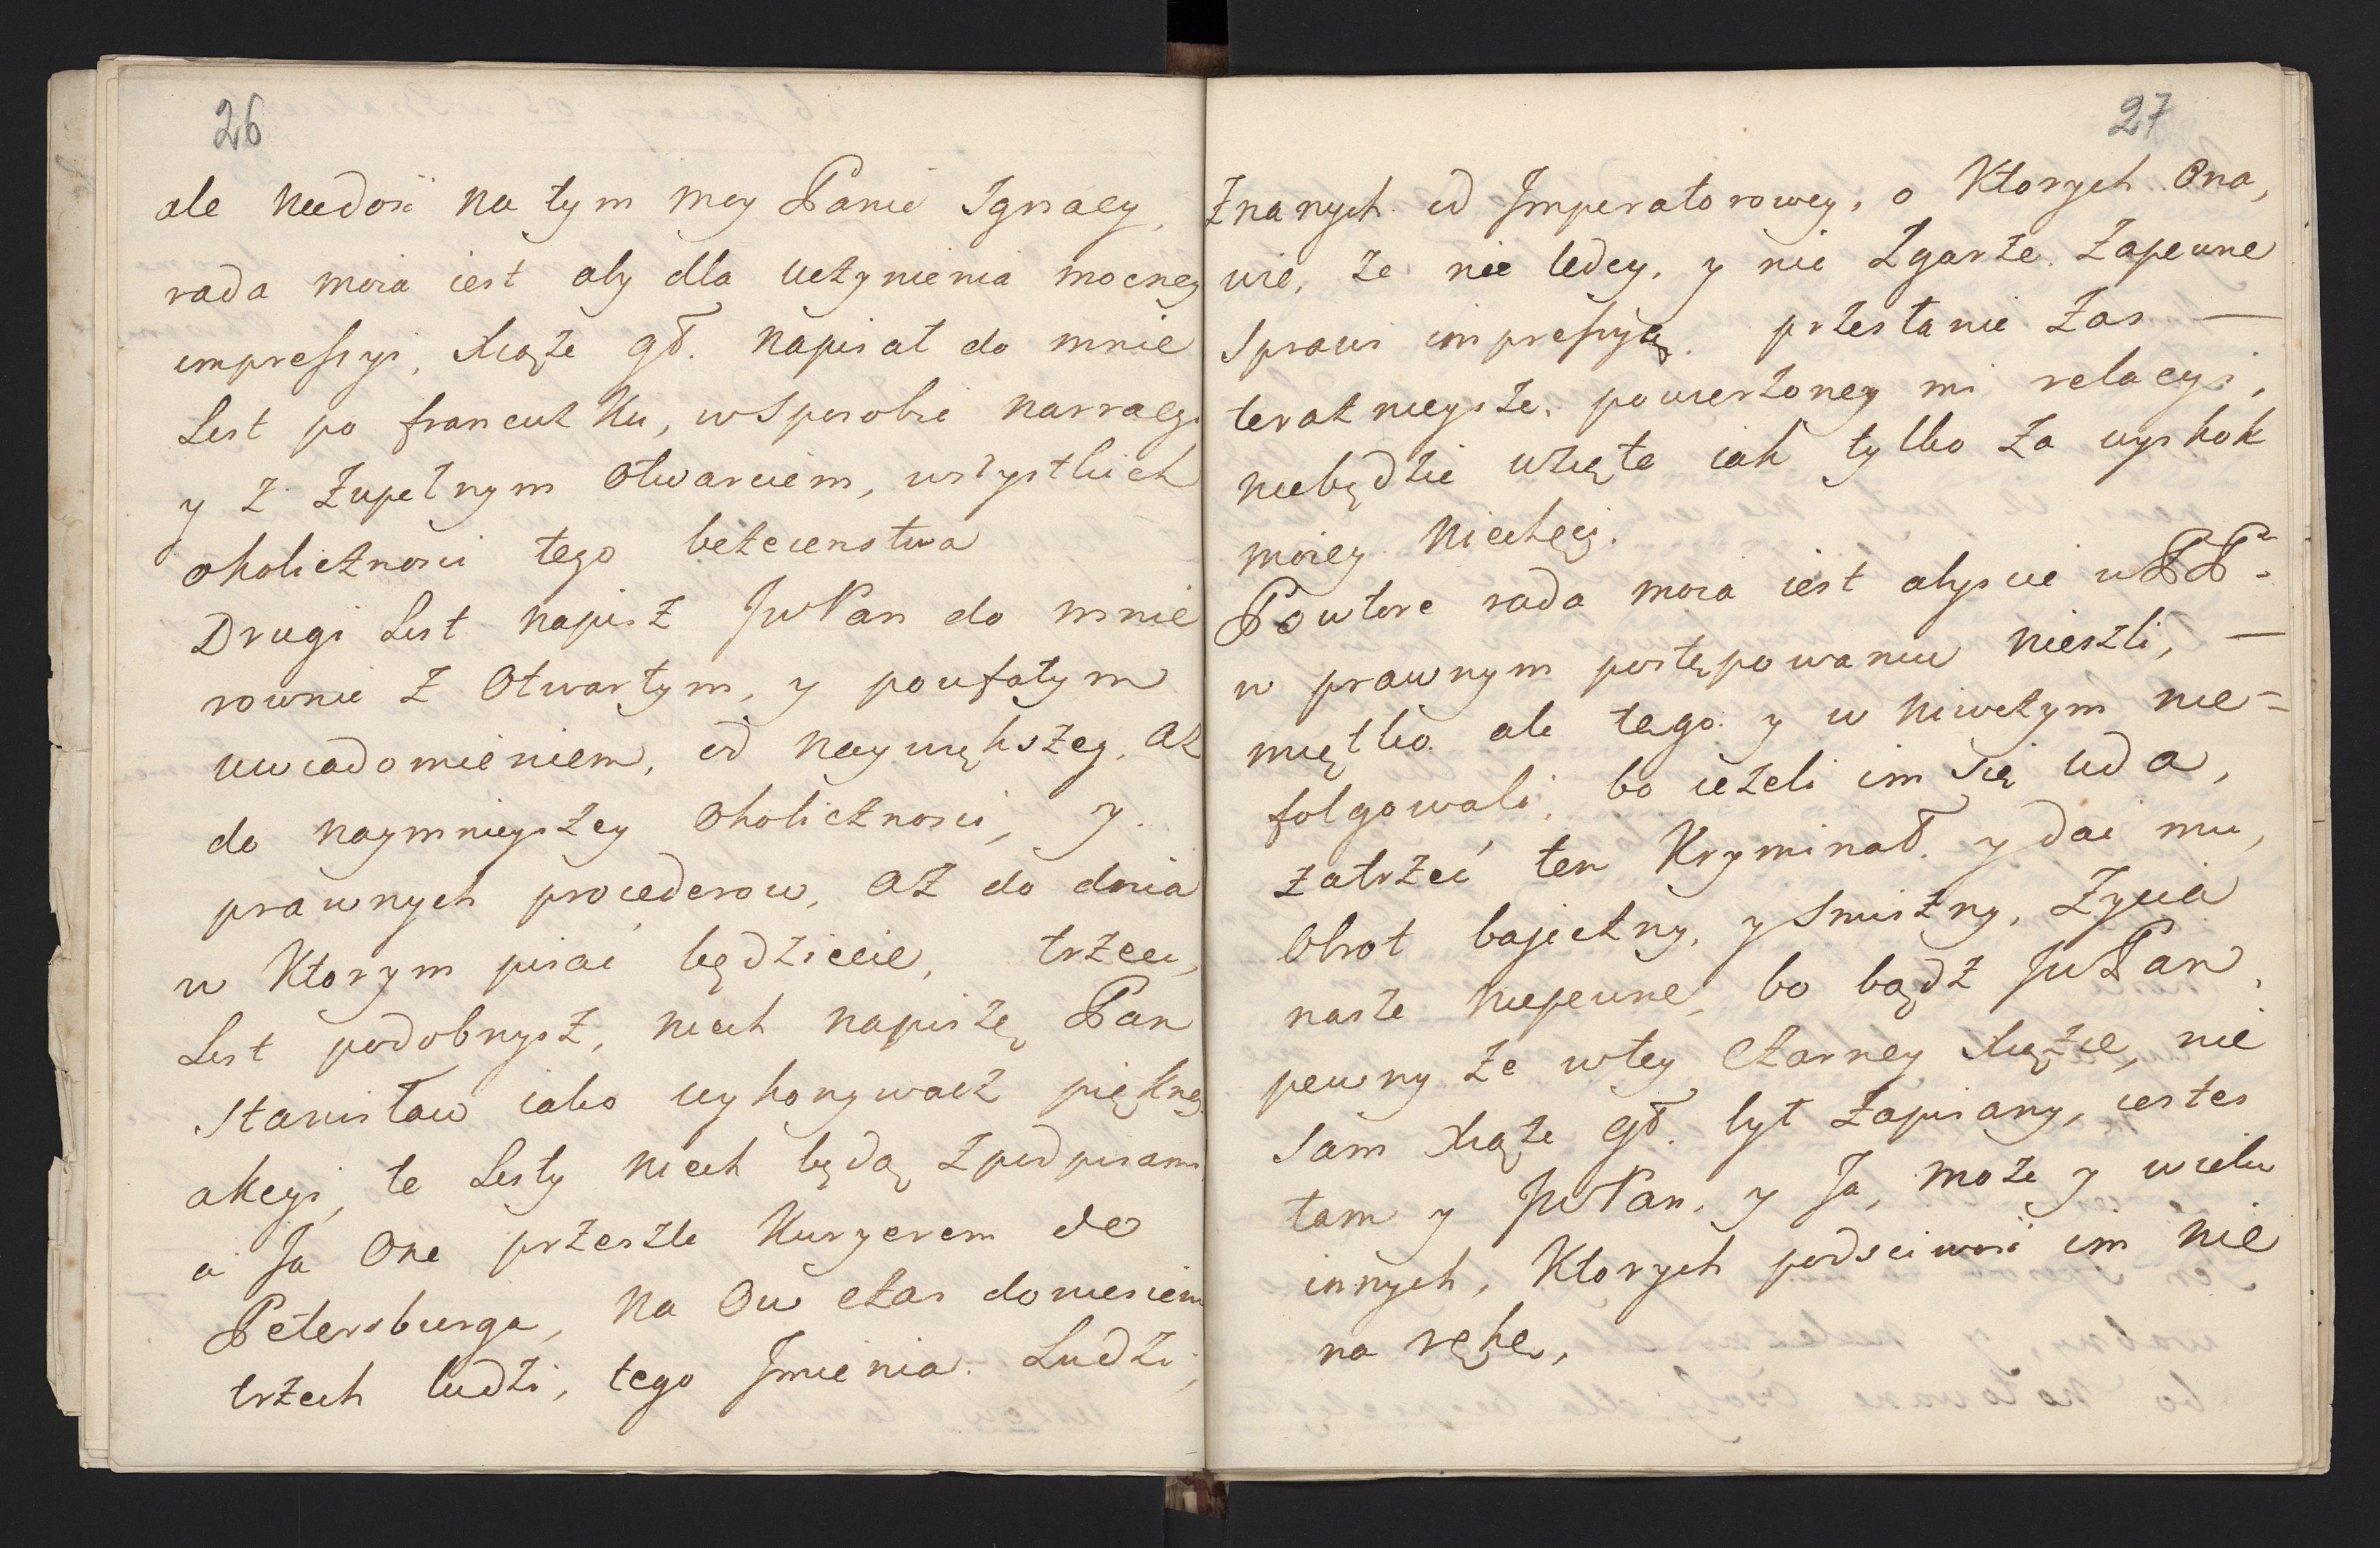 26
ale niedosć na tym moy Panie Ignacy,
rada moia iest aby dla uczynienia mocney
impressyi, Xiąże gł. napisał do mnie
List po francuzku, w sposobie narracyi
y z zupełnym otwarciem, wszystkich
okolicznosci tego bezecenstwa
Drugi List napisz JWPan do mnie
rownie z otwartym, y poufałym
uwiadomieniem, od naywiększey, aż
do naymnieyszey okolicznosci, y
prawnych procederow, aż do dnia
w Ktorym pisać będziecie, trzeci,
List podobnysz, niech napiszę Pan
Stanisław iako wykonywacz piękney
akcyi, te Listy niech będą z podpisami
a Ja One przeszle Kuryerem do
Petersburga, na Ow czas doniesiem
trzech ludzi, tego Jmienia. Ludzi,
27
Znanych od Jmperatorowey, o Ktorych Ona,
wie, że nie ledcy, y nie Zgarze. Zapewne
sprawi impressyą. przesłanie Zas —
teraznieysze, powierzoney mi relacyi,
niebędzie wzięte iak tylko za wyskok
moiey niechęci.
Powtore rada moia iest abyscie w PP.
w prawnym postępowaniu nieszli, —
miętko ale tego y w niwczym nie=
folgowali, bo ieżeli im się uda,
zatrzeć ten Kryminał y dać mu,
Obrot bajeczny, y smiszny, Zycia
nasze niepewne, bo bądz JWPan
pewny że w tey Czarney Xiężce, nie
sam Xiąże gł. był zapisany, iestes
tam y JWPan, y Ja, może y wielu
innych, Ktorych podsciwosć im nie
na rękę,